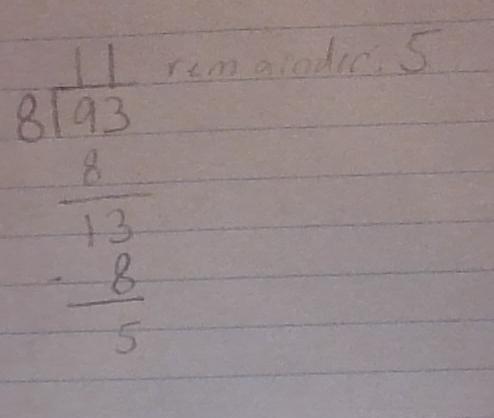 11 remainder: 5
8 93
8
13
- 8
5